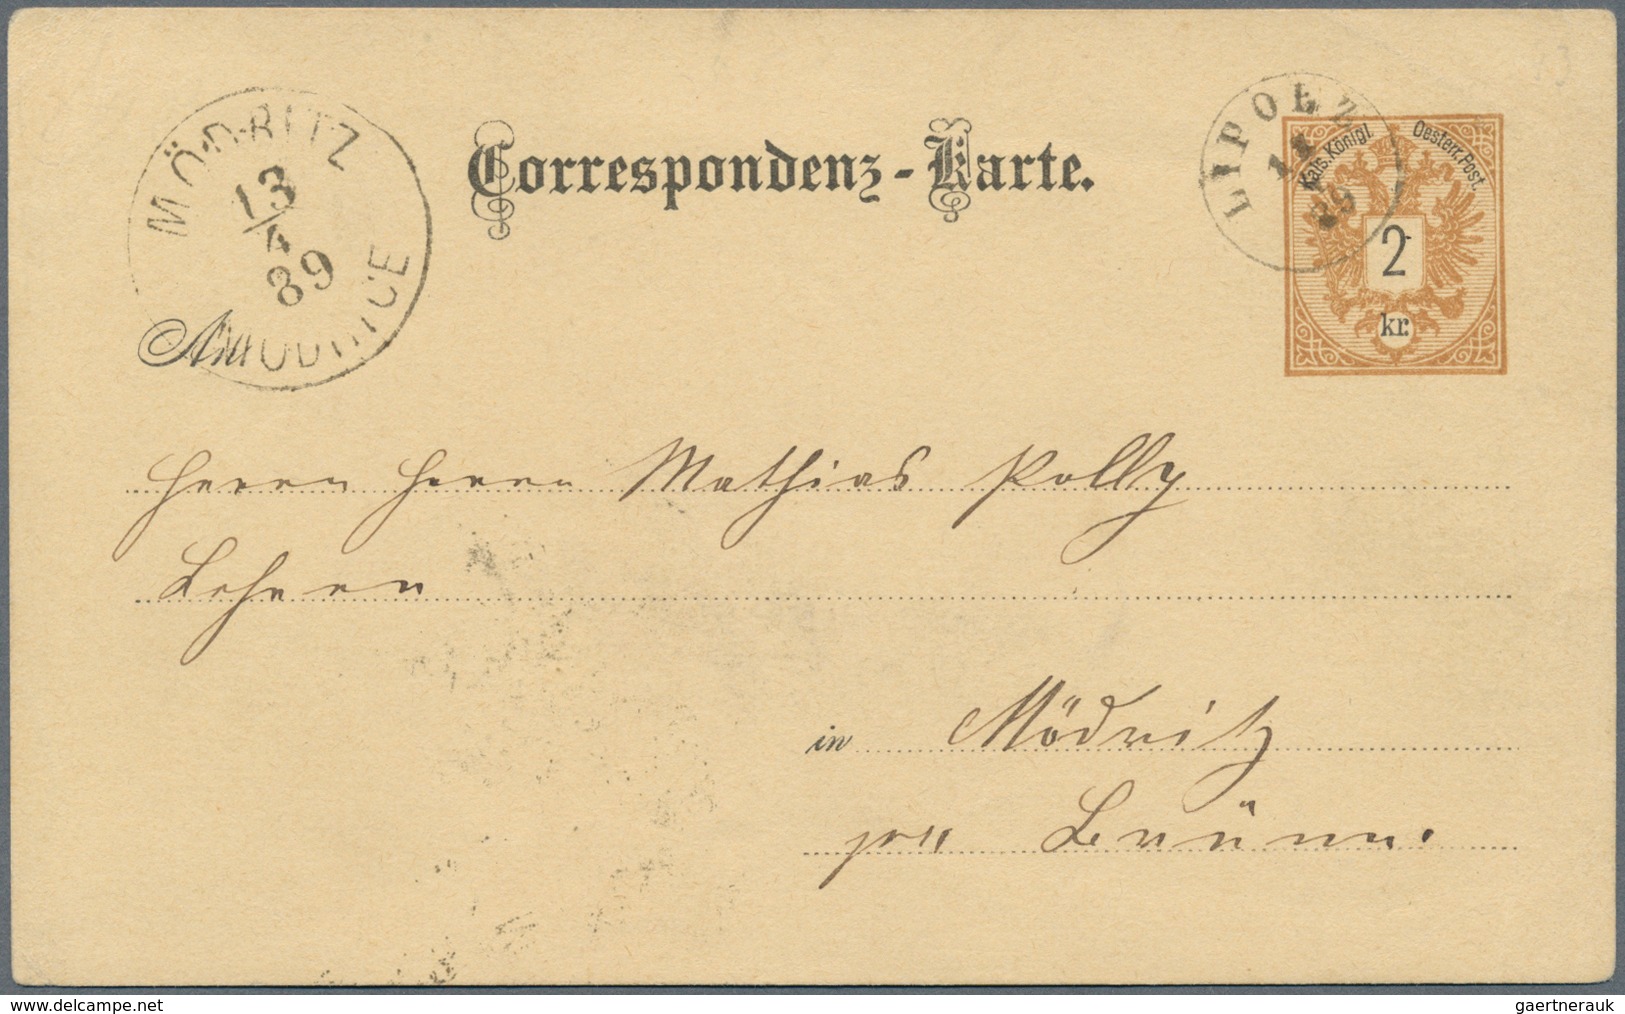 Correspondenz-Karte.
MÖDRITZ
13
4
89
MODŘICE
LIPOLZ
89
Kais. Königl. Oesterr. Post.
2
kr.
An
Herrn Herrn Mathias Polly
Lehrer
in Mödritz
per Brünn.
delcampe.net
gaertnerauk